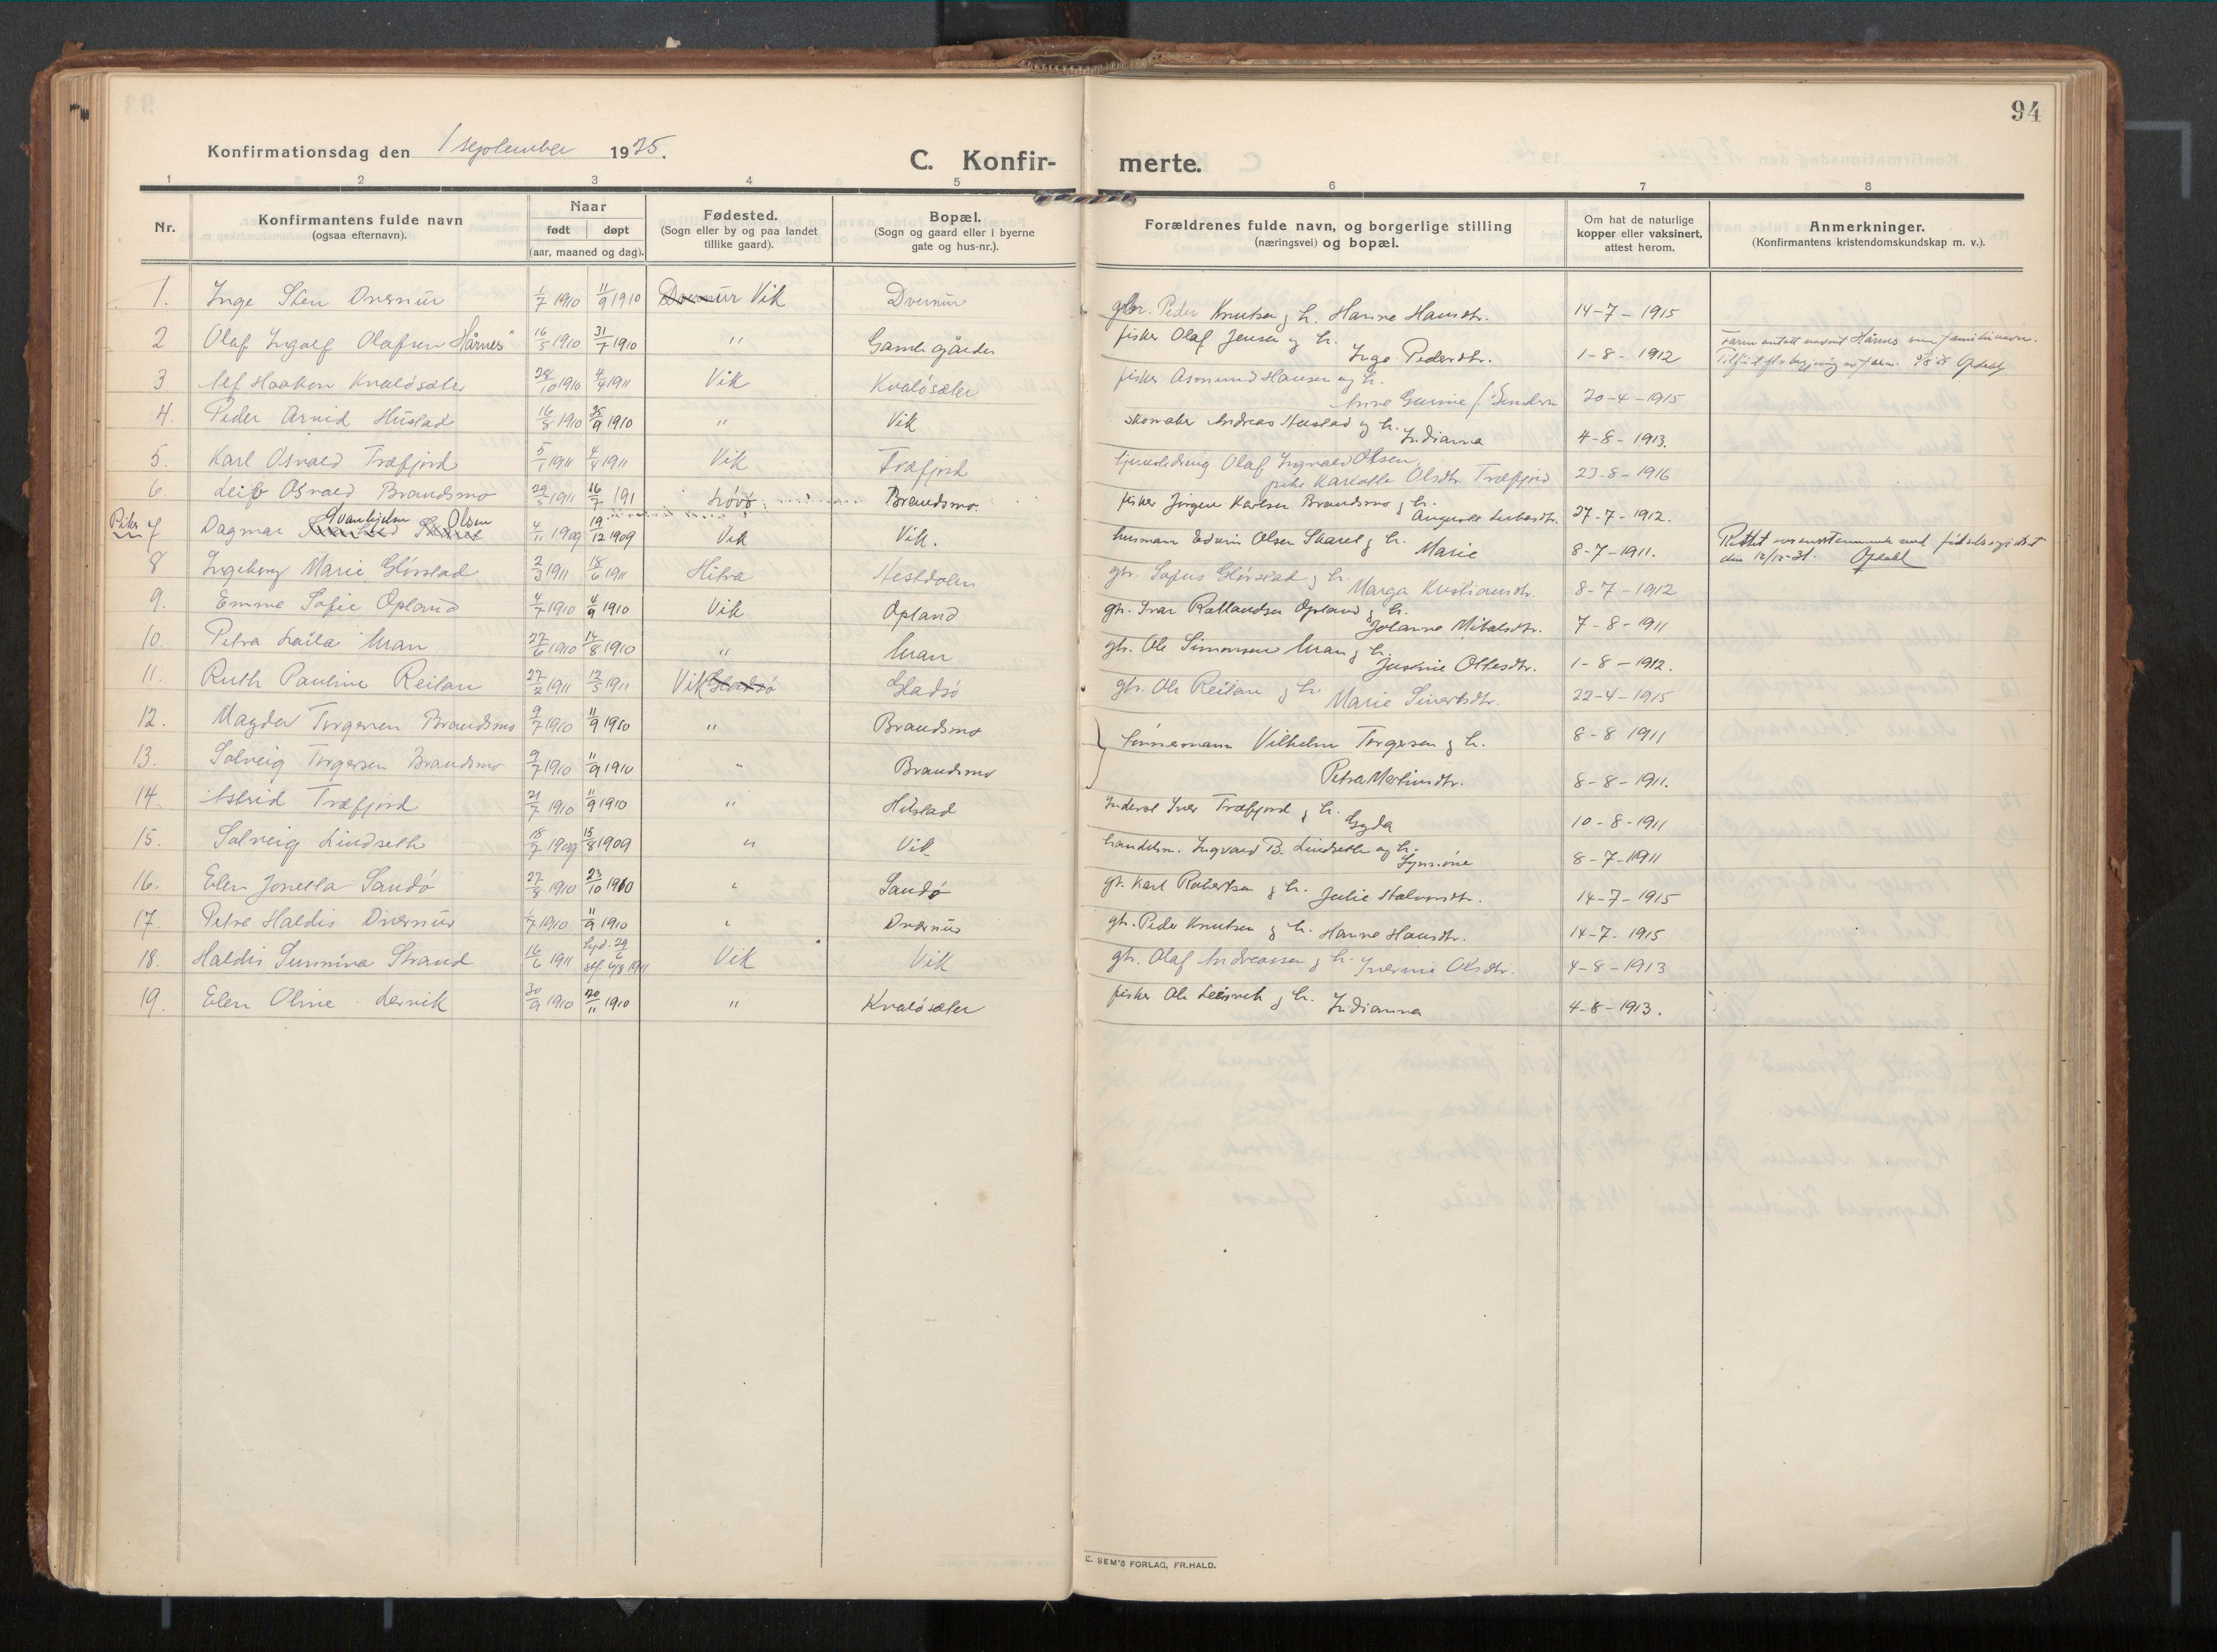 94
Konfirmationsdag den 1 september 1925.
C. Konfir-
merte.
1 2 3 4 5 6 7 8
Nr.
Konfirmantens fulde navn
(ogsaa efternavn).
Naar
født døpt
(aar, maaned og dag).
Fødested.
(Sogn eller by og paa landet
tillike gaard).
Bopæl.
(Sogn og gaard eller i byerne
gate og hus-nr.).
Forældrenes fulde navn, og borgerlige stilling
(næringsvei) og bopæl.
Om hat de naturlige
kopper eller vaksinert,
attest herom.
Anmerkninger.
(Konfirmantens kristendomskundskap m. v.).
1. Inge Sten Dvernür 1/7 1910 11/9 1910 Dvernür Vik Dvernür gbr. Peder Knutsen og h. Hanne Hansdtr. 14-7-1915
2 Olaf Ingolf Olafsen Hårnes 16/5 1910 31/7 1910 " Gamlegården fisker Olaf Jensen og h. Inge Pedersdtr. 1-8-1912
3. Alf Haakon Kvaløsæter 28/10 1910 4/4 1911 Vik Kvaløsæter fisker Asmund Hansen og h. 20-4-1915
4. Peder Arvid Hustad 16/8 1910 25/9 1910 " Vik skomaker Andreas Hustad og h. Indianna 4-8-1913.
5. Karl Osvald Træfjord 5/1 1911 4/4 1911 Vik Træfjord Olaf Ingvald Olsen pike Karlotte Olsdtr. Træfjord 23-8-1916
6. Leif Osvald Brandsmo 29/5 1911 16/7 191 Brandsmo. fisker Jørgen Karlsen Brandsmo og h. 27-7-1912.
Piker 7 Dagmar Svanhild Skaret Evanhjelm Olsen 4/11 1909 19/12 1909 Vik Vik. husmann Edvin Olsen Skaret og h. Marie 8-7-1911. den 12/12-31. Opdahl
8 Ingeborg Marie Glørstad 2/3 1911 18/6 1911 Hitra Nestdalen gbr. Sofus Glørstad og h. Marga Kristiansdtr. 8-7-1912
9. Emma Sofie Opland 4/7 1910 4/9 1910 Vik Opland gbr. Ivar Opland og h. Johanna 7-8-1911
10. Petra Laila Uran 27/6 1910 14/8 1910 " Uran gbr. Ole Simonsen Uran og h. Justine Ottesdtr. 1-8-1912.
11. Ruth Pauline Reitan 27/2 1911 12/5 1911 Vik Gladsø Gladsø gbr. Ole Reitan og h. Marie Sivertsdtr. 22-4-1915
12. Magda Torgersen Brandsmo 9/7 1910 11/9 1910 " Brandsmo Tømmermann Vilhelm Torgersen og h. 8-8 1911
13. Solveig Torgersen Brandsmo 9/7 1910 11/9 1910 " Brandsmo Petra Martinsdtr. 8-8-1911.
14. Astrid Træfjord 21/7 1910 11/9 1910 " Hustad Inderst Iver Træfjord og h. Gyda 10-8-1911
15. Solveig Lindseth 18/7 1909 15/8 1909 " Vik handelsm. Ingvald B. Lindseth og h. 8-7-1911
16. Elen Jonetta Sandø 27/8 1910 23/10 1910 " Sandø gb. Karl Robertsen og h. Julie Halvorsdtr. 14-7-1915
17. Petra Haldis Dvernüs 1/7 1910 11/9 1910 " Dvernüs gbr. Peder Knutsen og h. Hanne Hansdtr. 14-7-1915
18. Haldis Sunniva Strand 16/6 1911 Vik Vik gbr. Olaf Andreassen og h. Olsdtr. 4-8-1913
19. Elen Oline Lervik 30/9 1910 20/11 1910 " Kvaløsæter fisker Ole Leirvik og h. Indianna 4-8-1913.
E. SEM'S FORLAG, FR.HALD.